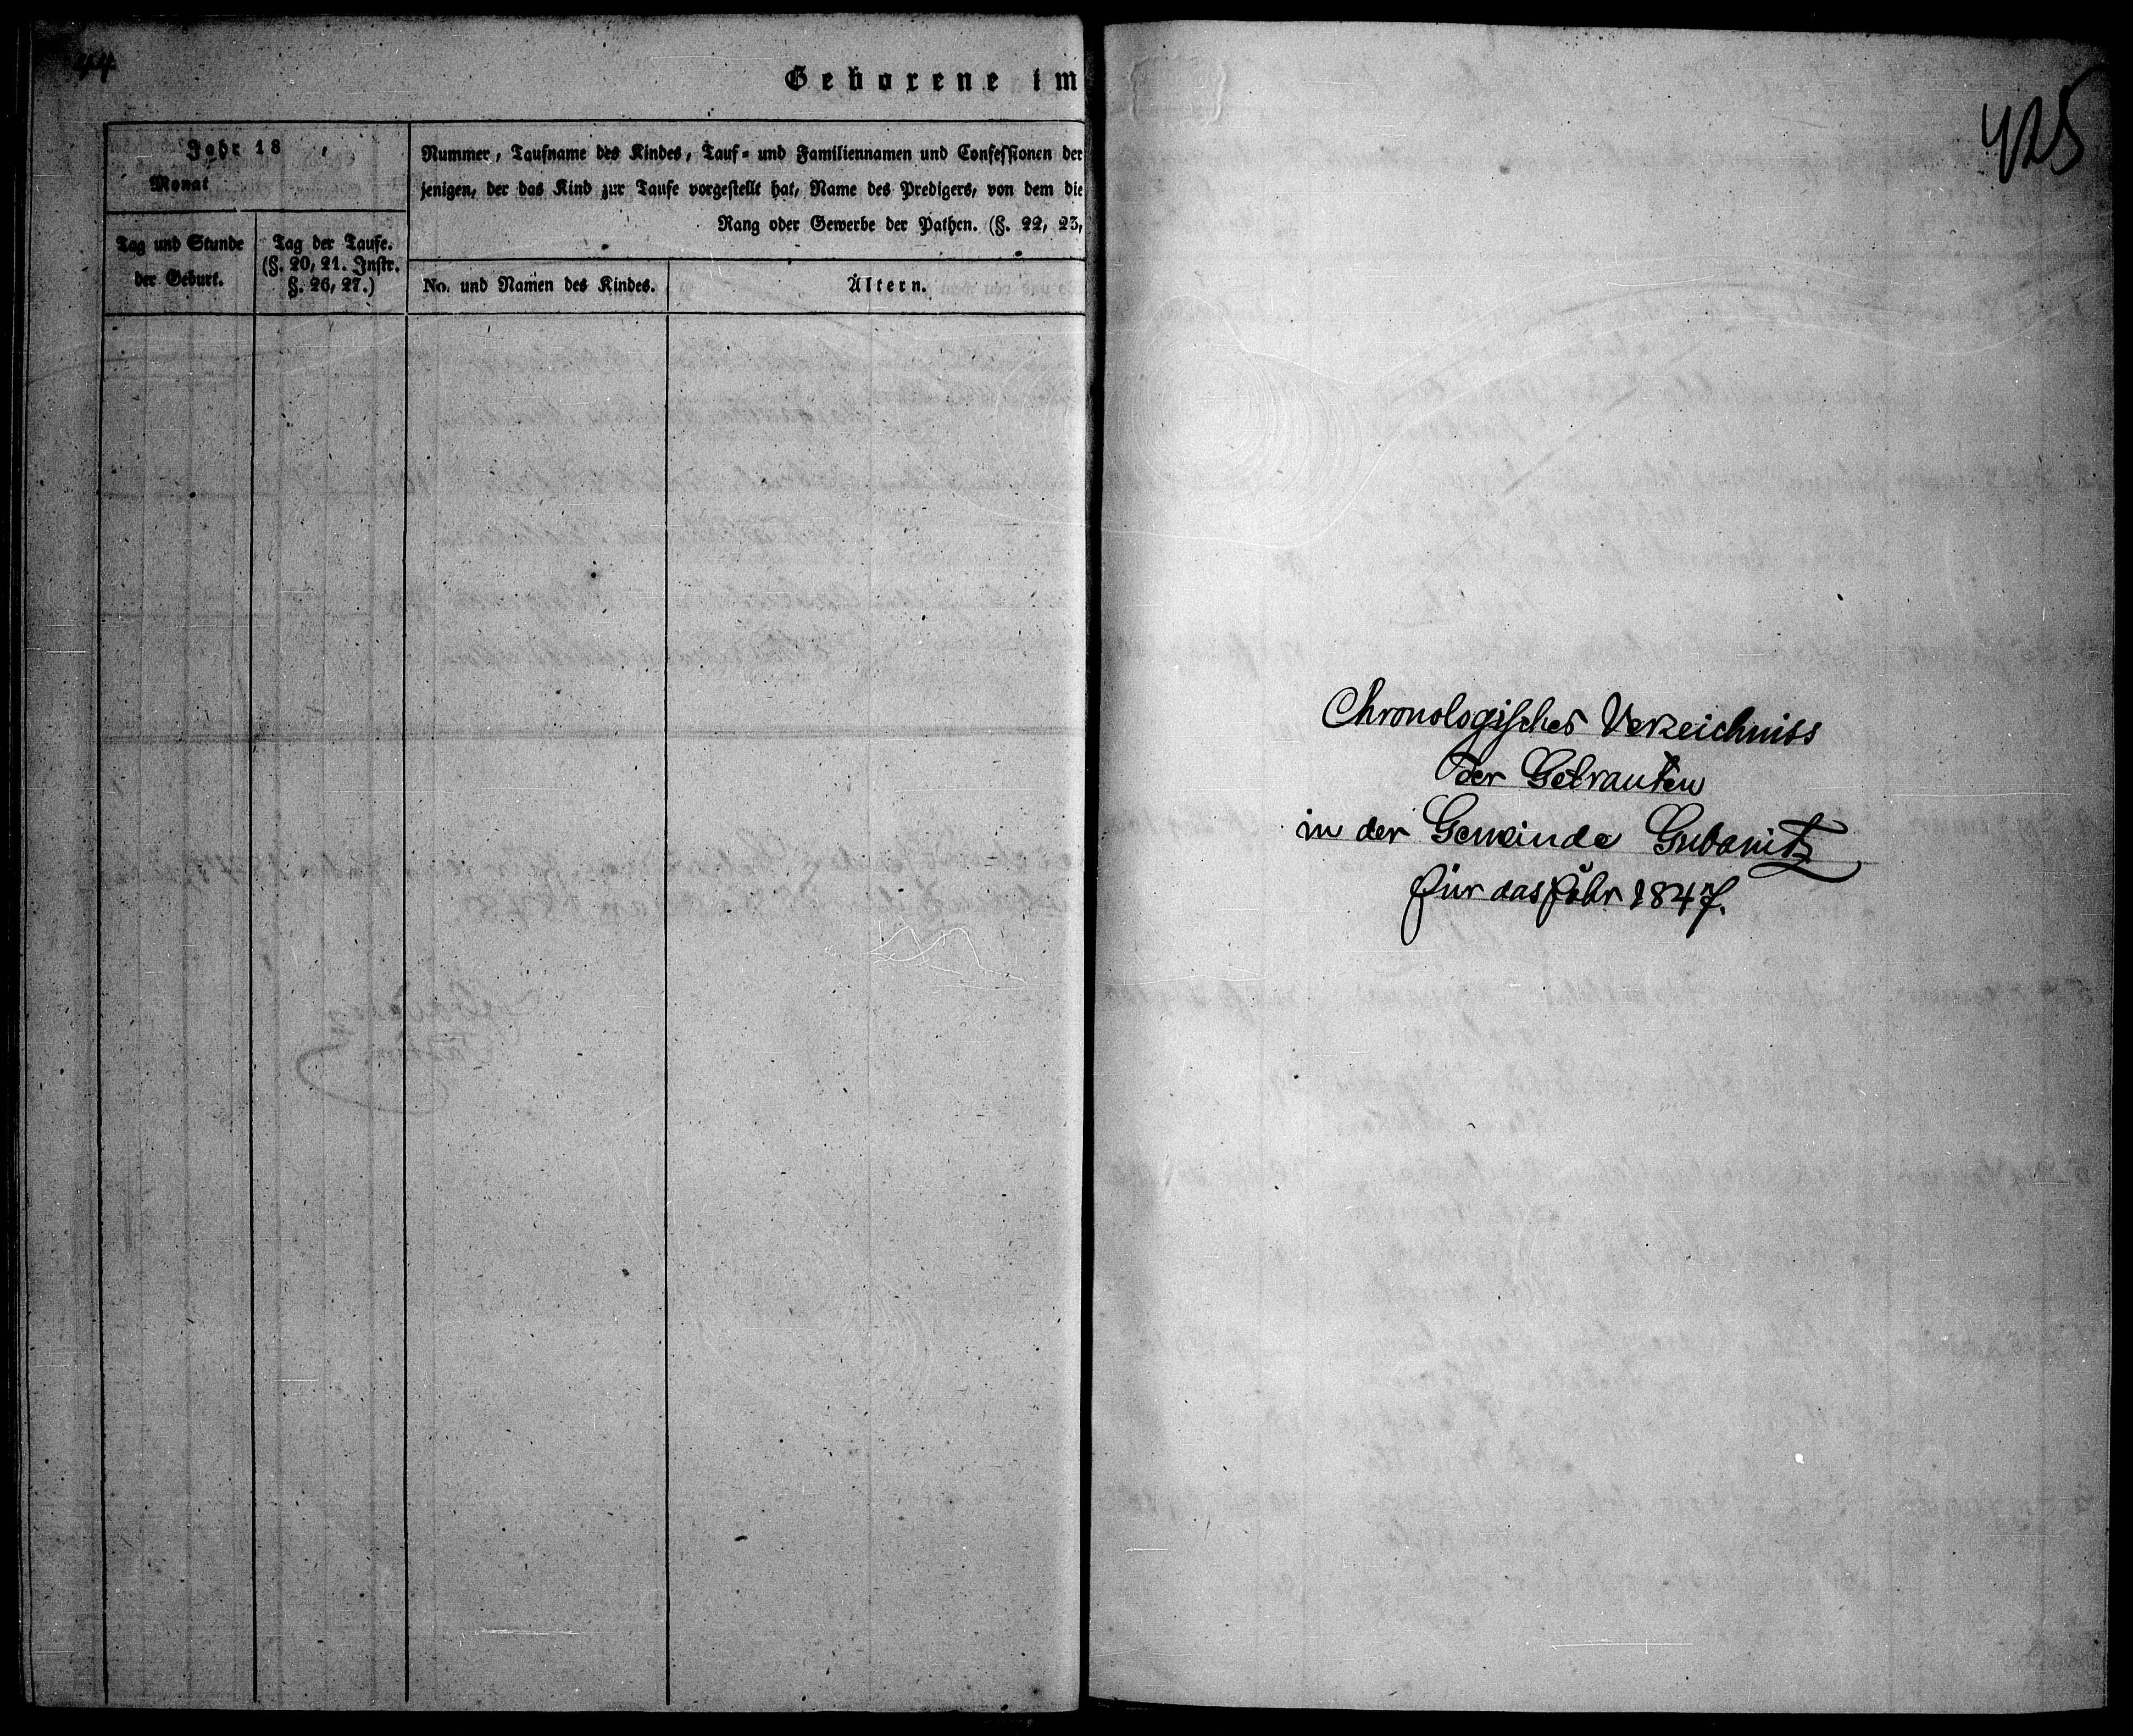 44
Geborene im
Jahr 18
Monat
Tag und Stunde
der Geburt.
Tag der Taufe.
(§. 20, 21. Instr.
§. 26, 27.)
Nummer, Taufname des Kindes, Tauf= und Familiennamen und Confessionen der
jenigen, der das Kind zur Taufe vorgestellt hat, Name des Predigers, von dem die
Rang oder Gewerbe der Pathen. (§. 22, 23,
No. und Namen des Kindes.
Ältern.
425
Chronologisches Verzeichniss
der Getrauten
in der Gemeinde Gubanitz
für das Jahr 1847.